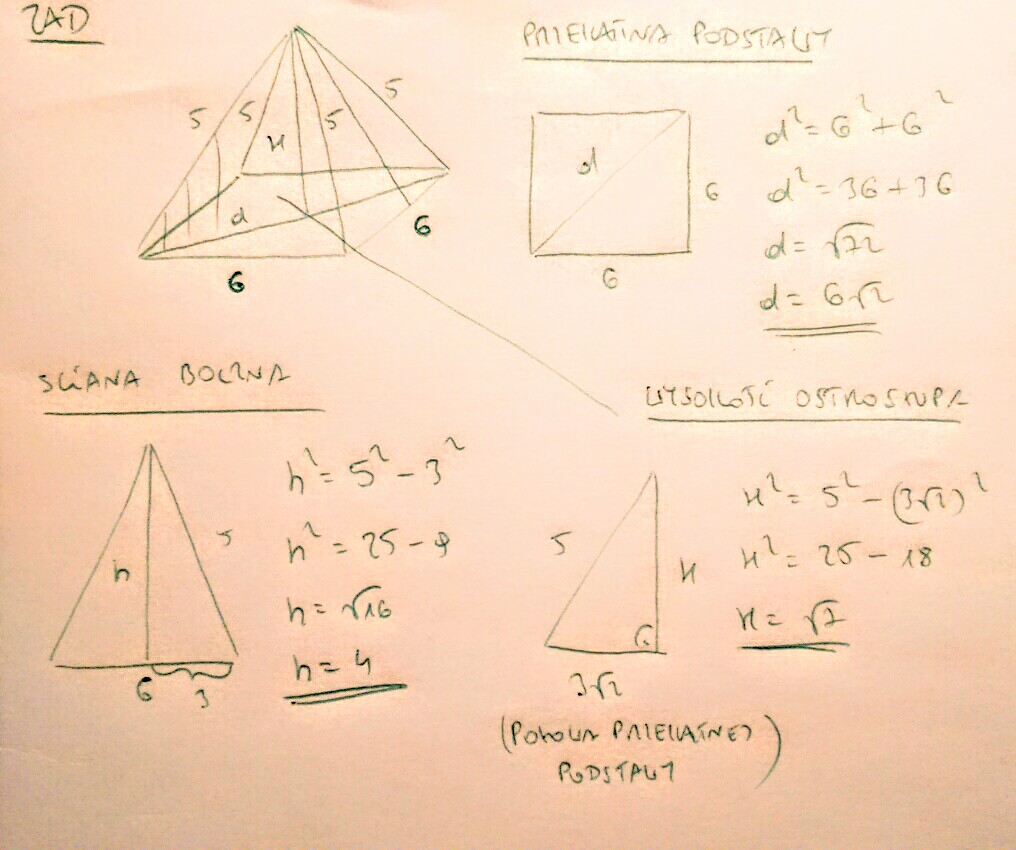 ZAD
5
5
H
5
5
d
6
6
PRZEKĄTNA PODSTAWY
d
6
6
d² = 6² + 6²
d² = 36 + 36
d = √72
d = 6√2
ŚCIANA BOCZNA
h
5
6
3
h² = 5² - 3²
h² = 25 - 9
h = √16
h = 4
WYSOKOŚĆ OSTROSŁUPA
5
H
3√2
(POŁOWA PRZEKĄTNEJ
PODSTAWY)
H² = 5² - (3√2)²
H² = 25 - 18
H = √7